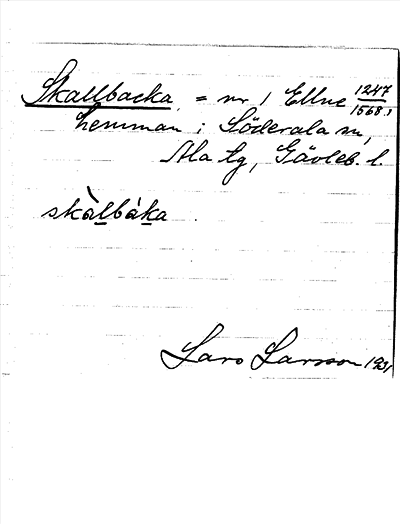 Skallbacka, = nr 1 Ellne 1247/1568.1
hemman i Söderala sn,
Ala tg, Gävleb. l.
skàlbáka
Lars Larsson 1931